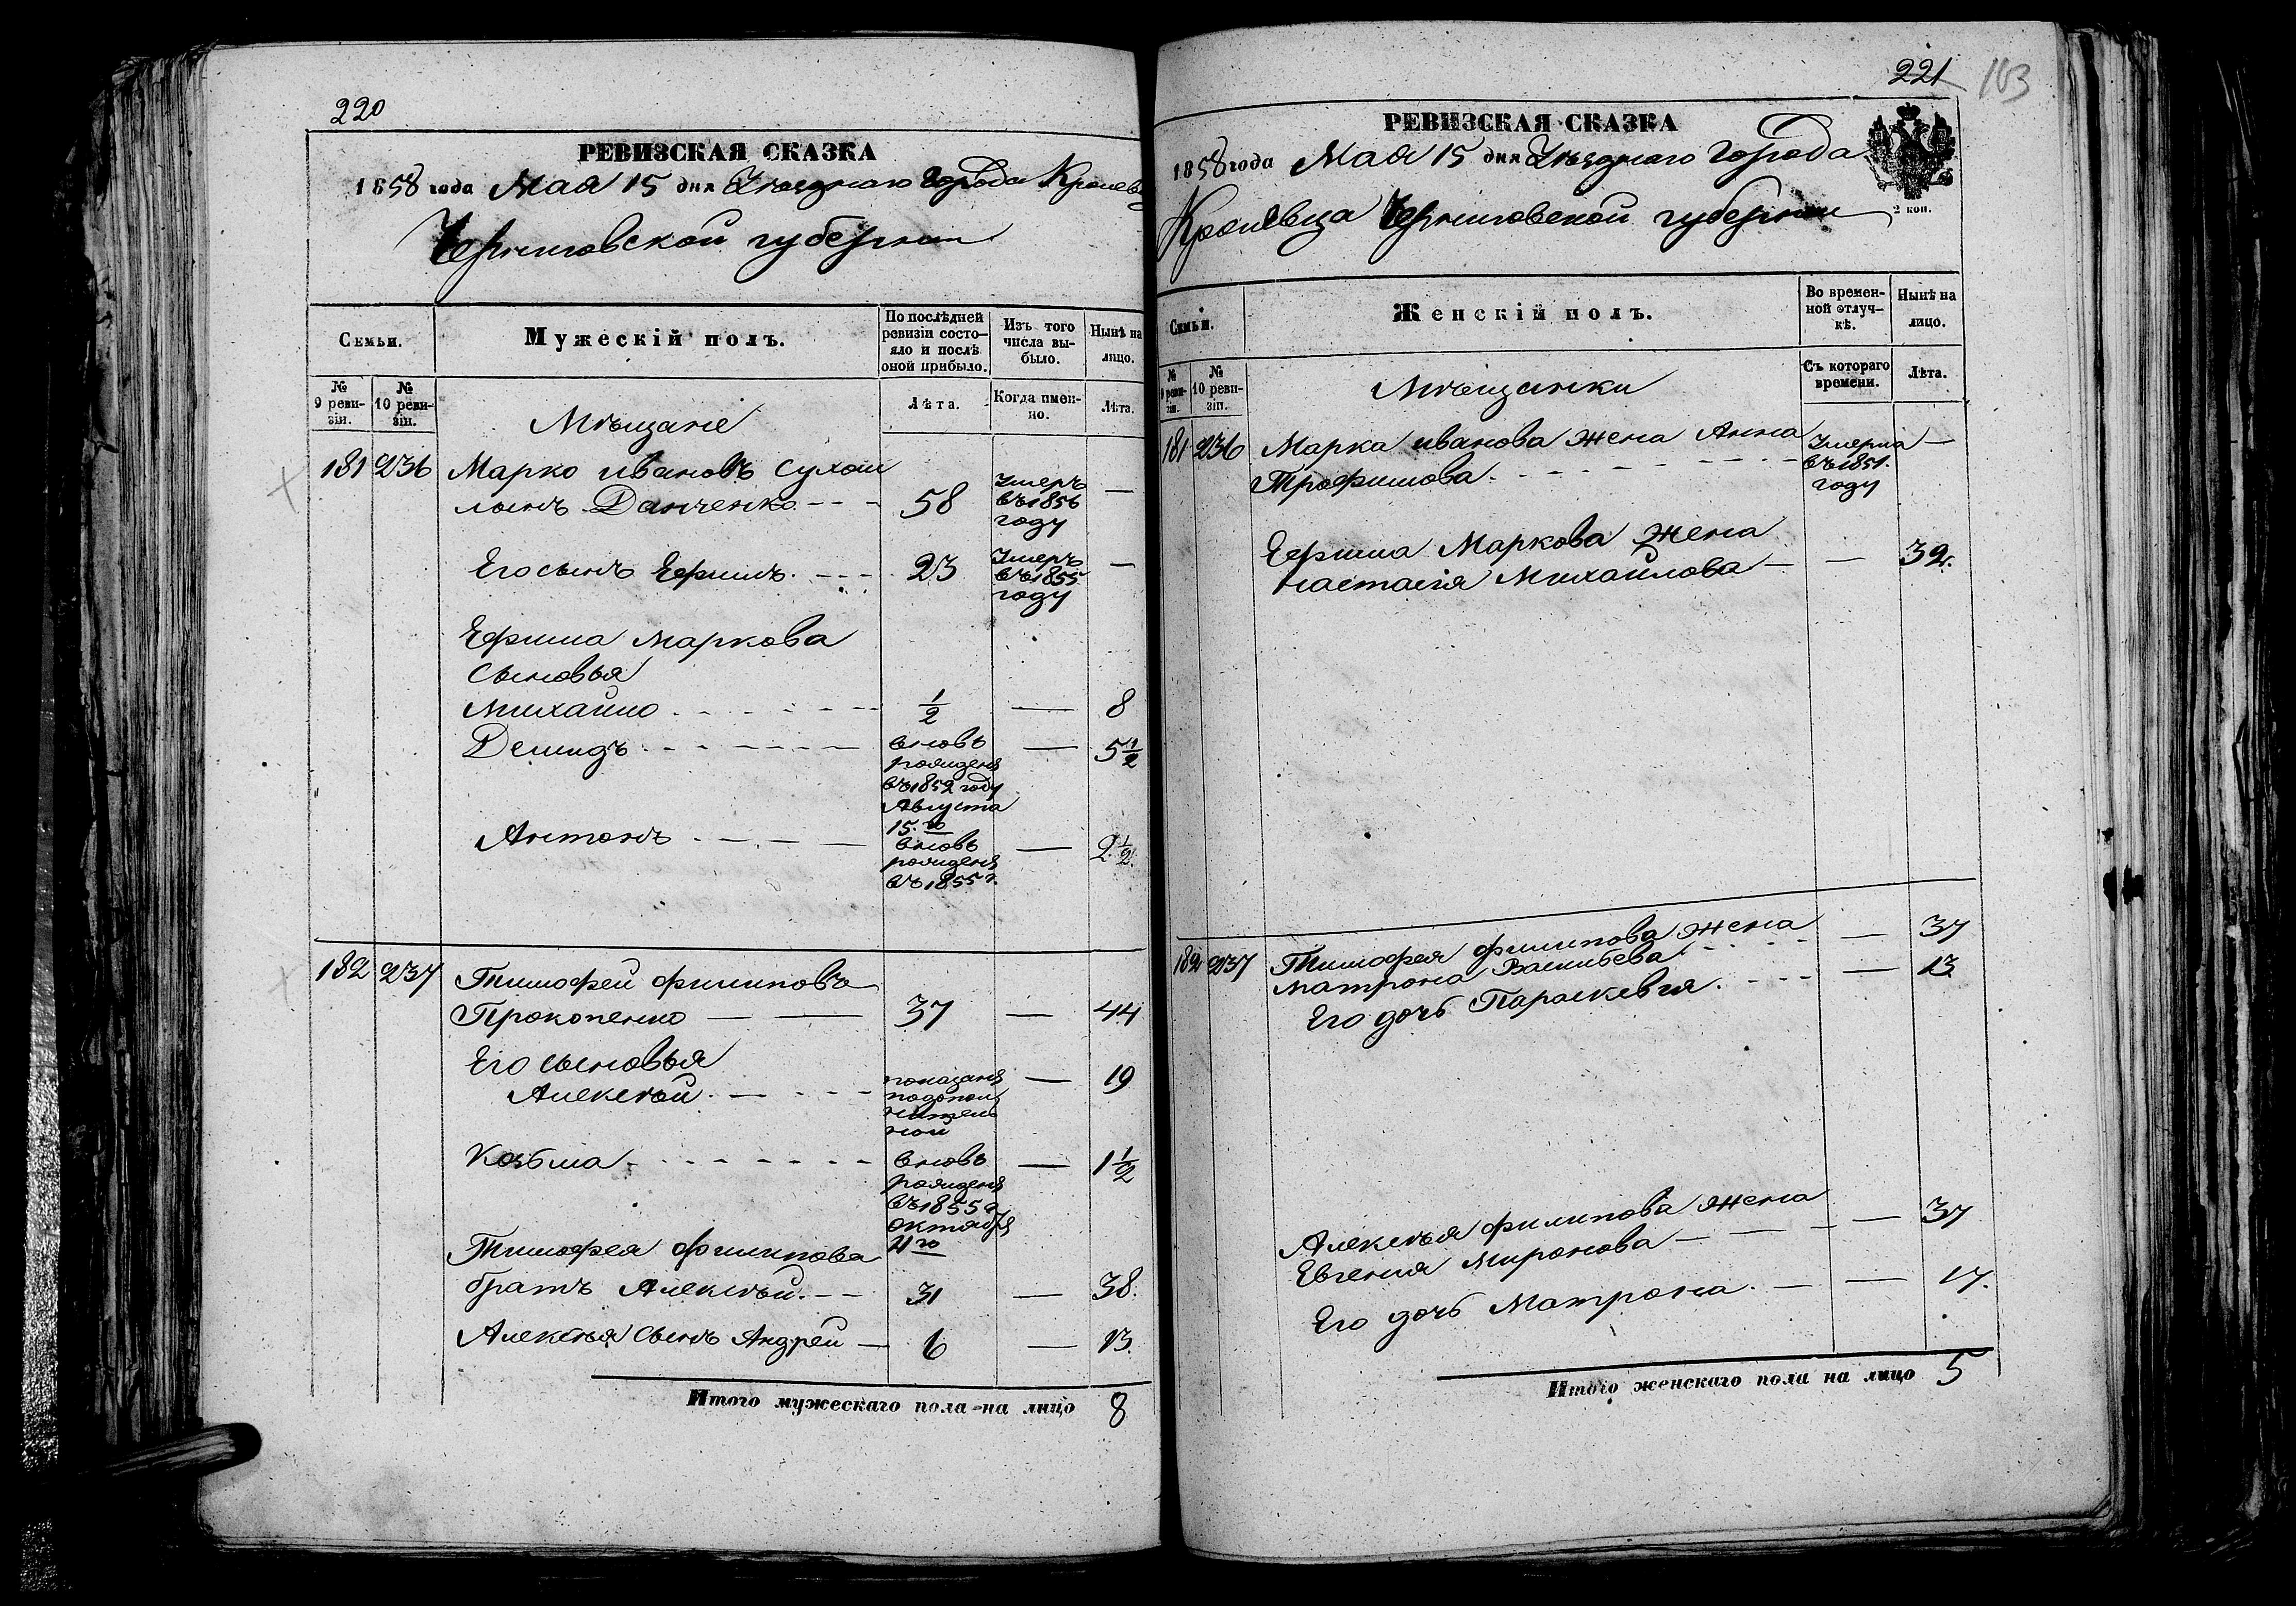 220
РЕВИЗСКАЯ СКАЗКА
1858 года Мая 15 дня Уѣзднаго Города Кролевца
Черниговской губернии
Семьи.
Мужескій полъ.
По послѣдней ревизіи состояло и послѣ оной прибыло.
Изъ того числа выбыло.
Нынѣ на лицо.
№ 9 ревизіи.
№ 10 ревизіи.
Мѣщане
Лѣта.
Когда именно.
Лѣта.
181 236 Марко ивановъ
Данченко 58 Умеръ въ 1856 году —
Его сынъ Ефимъ 23 Умеръ въ 1855 году —
Ефима Маркова
Сыновья
Михайло 1/2 — 8
Демидъ вновь рожденъ въ 1852 году Августа 15го — 5 1/2
Антонъ вновь рожденъ въ 1855 г. — 2 1/2
182 237 Тимофей филиповъ
Прокопенко 37 — 44
Его сыновья
Алексѣй показанъ по дополнительной — 19
Козьма вновь рожденъ въ 1855 г. октября — 1 1/2
Тимофея филипова
братъ Алексѣй 31 — 38.
Алексѣя Сынъ Андрей — 6 — 13.
Итого мужескаго пола на лицо 8
221
103
РЕВИЗСКАЯ СКАЗКА
1858 года Мая 15 дня Уѣзднаго Города
Кролевца Черниговской губернии
2 коп.
Семьи.
Женскій полъ.
Во временной отлучкѣ.
Нынѣ на лицо.
№ 9 ревизіи.
№ 10 ревизіи.
Мѣщанки
Съ котораго времени.
Лѣта.
181 236 Марка иванова жена Анна
Трофимова Умерла въ 1851. году —
Ефима Маркова жена
настасія Михайлова — — 32.
182 237 Тимофея филипова жена
матрона Васильева — 37
Его дочь Параскевія — 13
Алексѣя филипова жена
Евгенія Миронова — — 37
Его дочь Матрона — — 17.
Итого женскаго пола на лицо 5